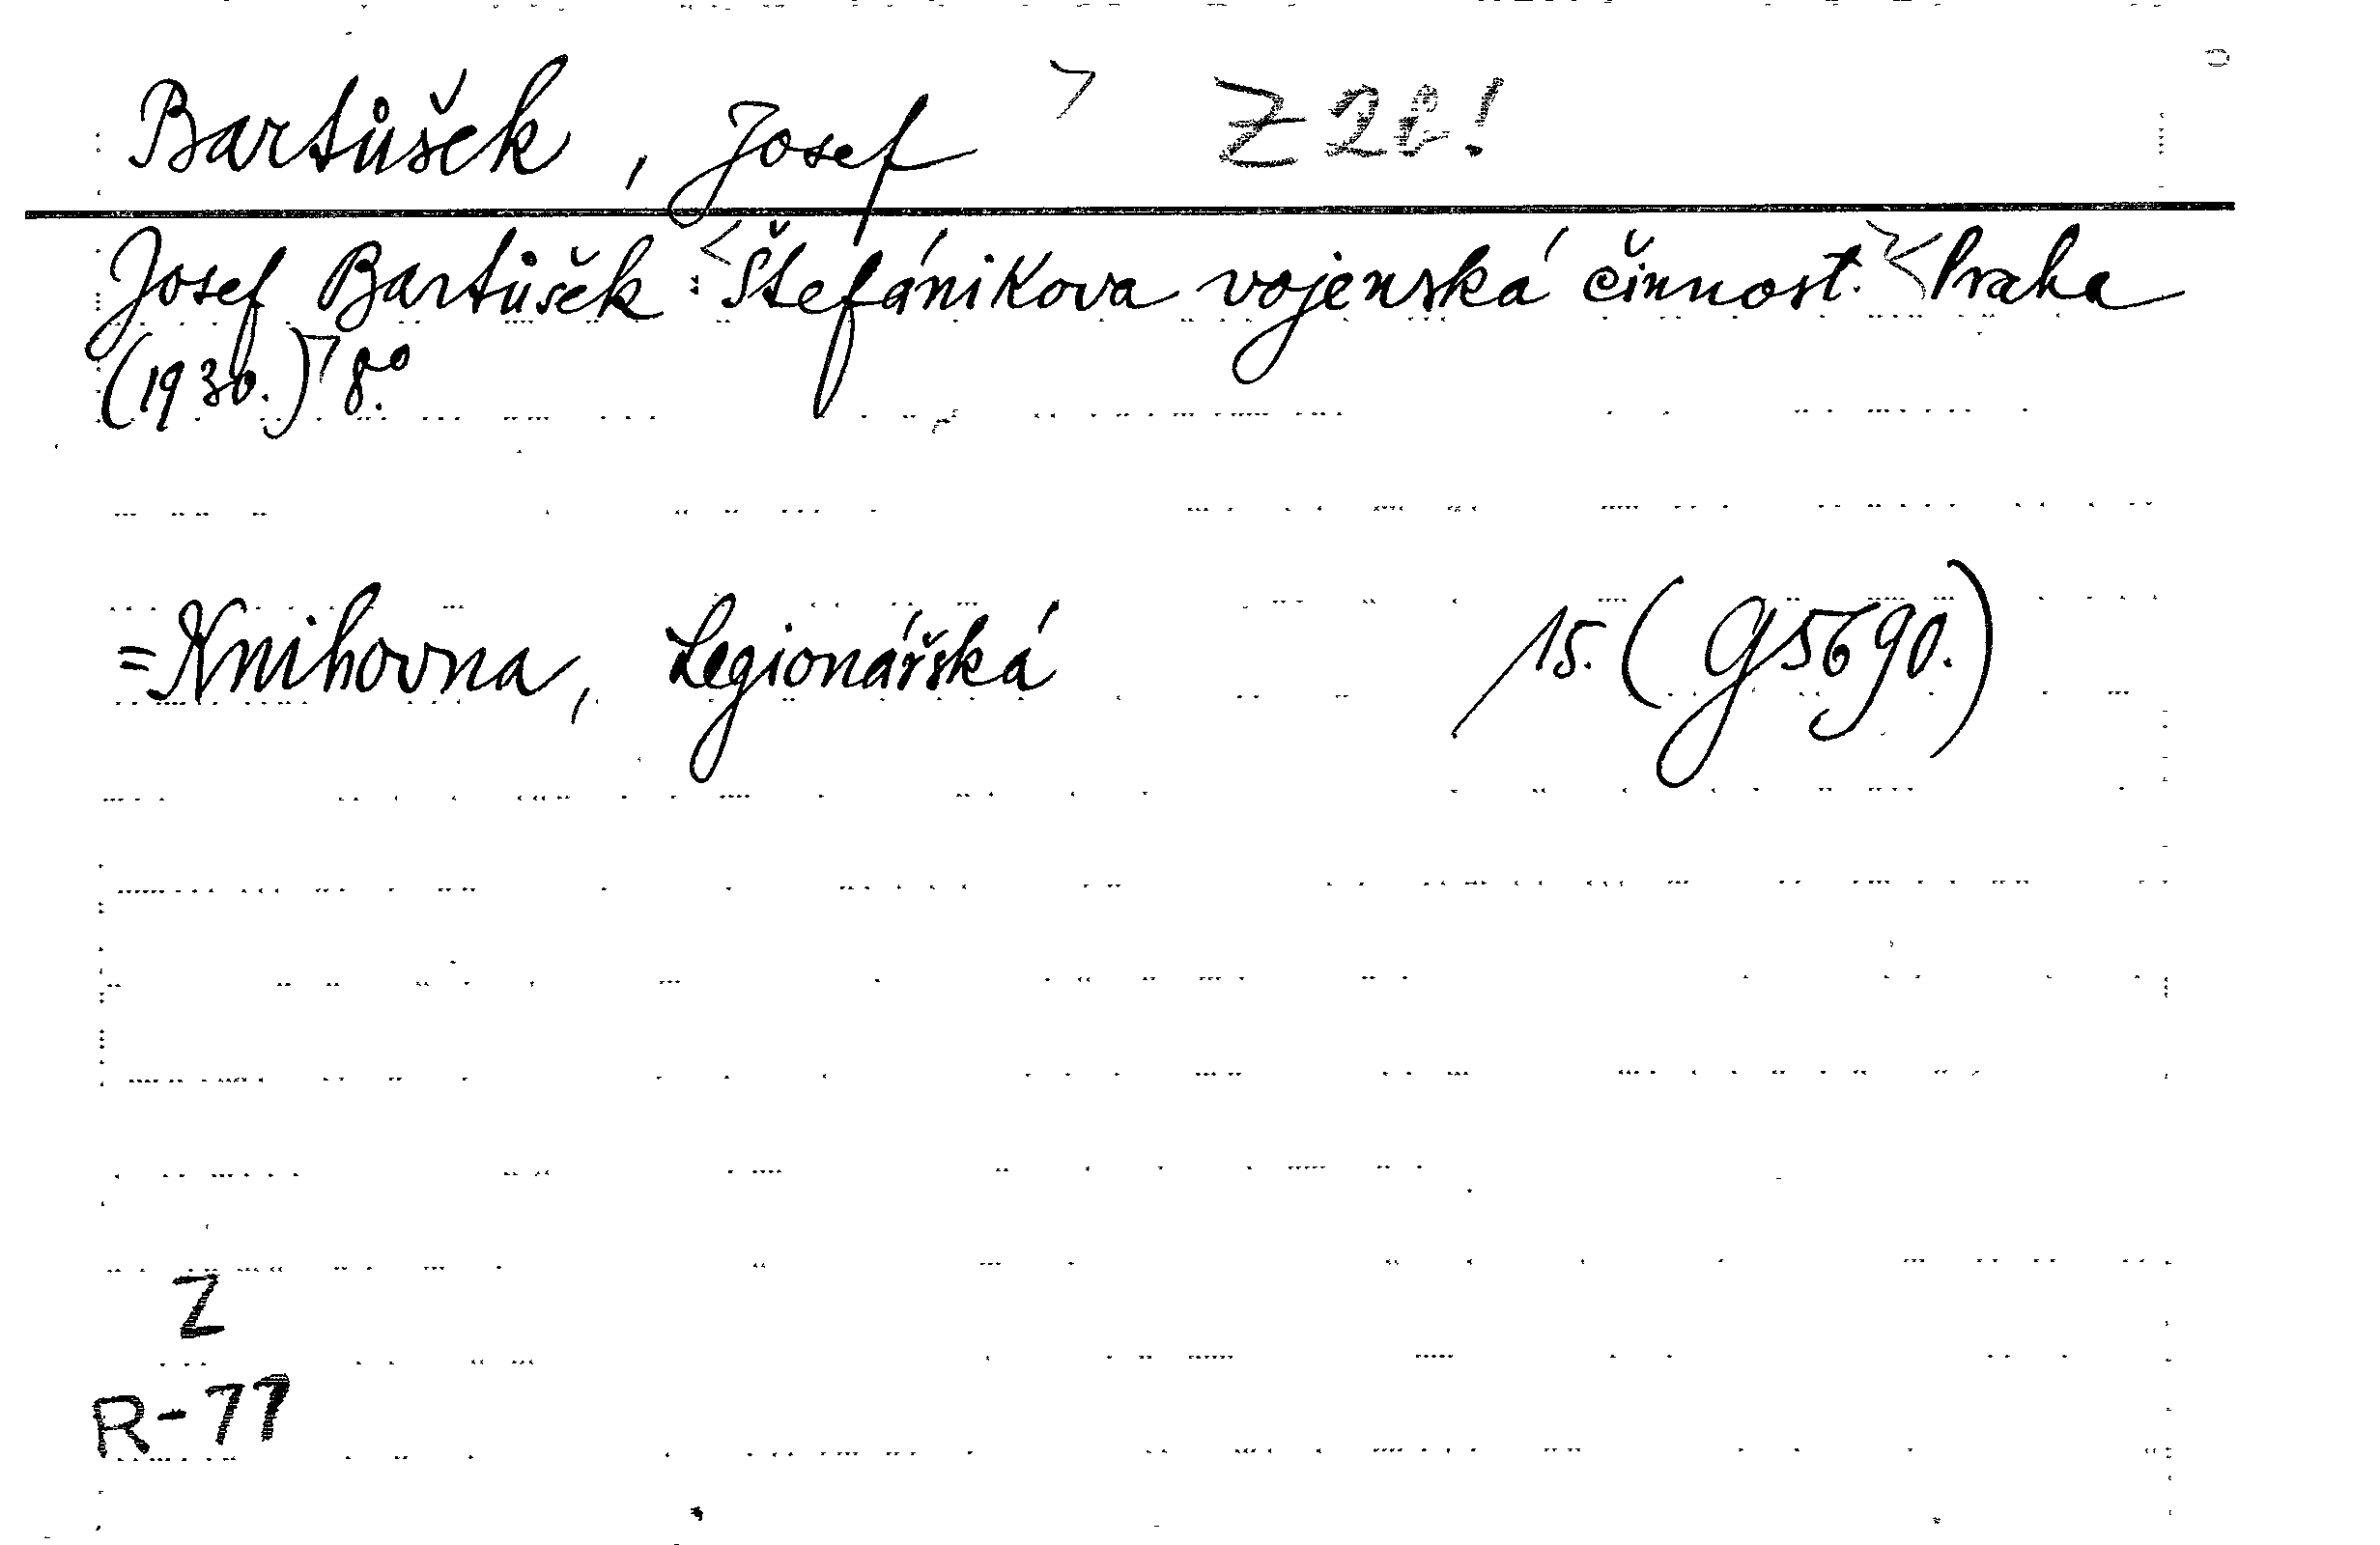 Bartůšek, Josef Z 2c!
Josef Bartůšek: Štefánikova vojenská činnost. Praha
(1930.) 8.º
=Knihovna, Legionářská 15. (G 5690.)
Z
R-77